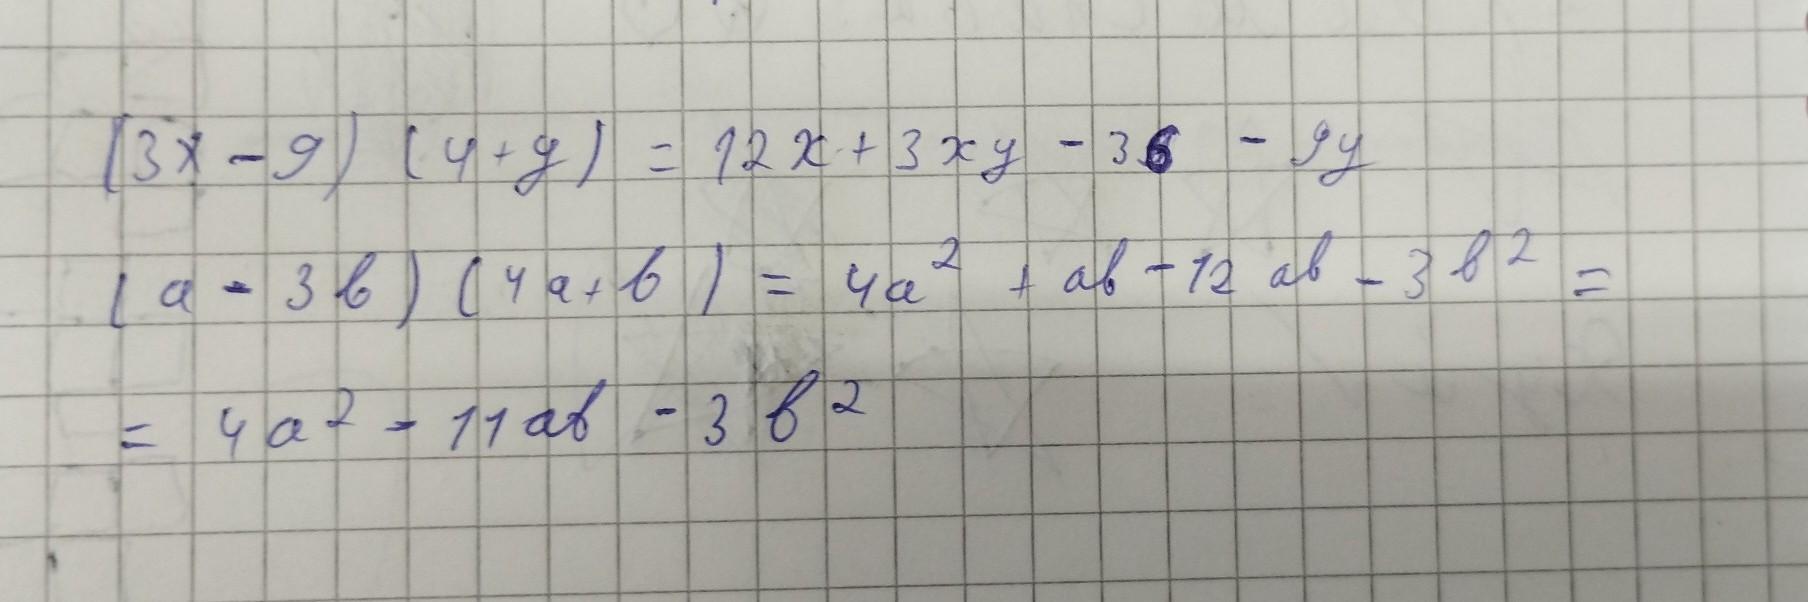 (3x - 9) (4 + y) = 12x + 3xy - 36 - 9y
(a - 3b) (4a + b) = 4a² + ab - 12ab - 3b² =
= 4a² - 11ab - 3b²